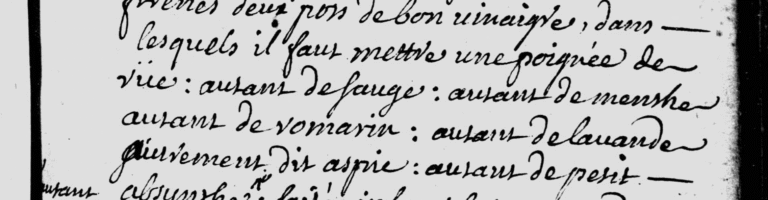 deux pots de bon vinaigre, dans
lesquels il faut mettre une poignée de
rüe : autant de sauge : autant de menthe
autant de romarin : autant de lavande
autrement dit aspic : autant de petit
autant absynthe